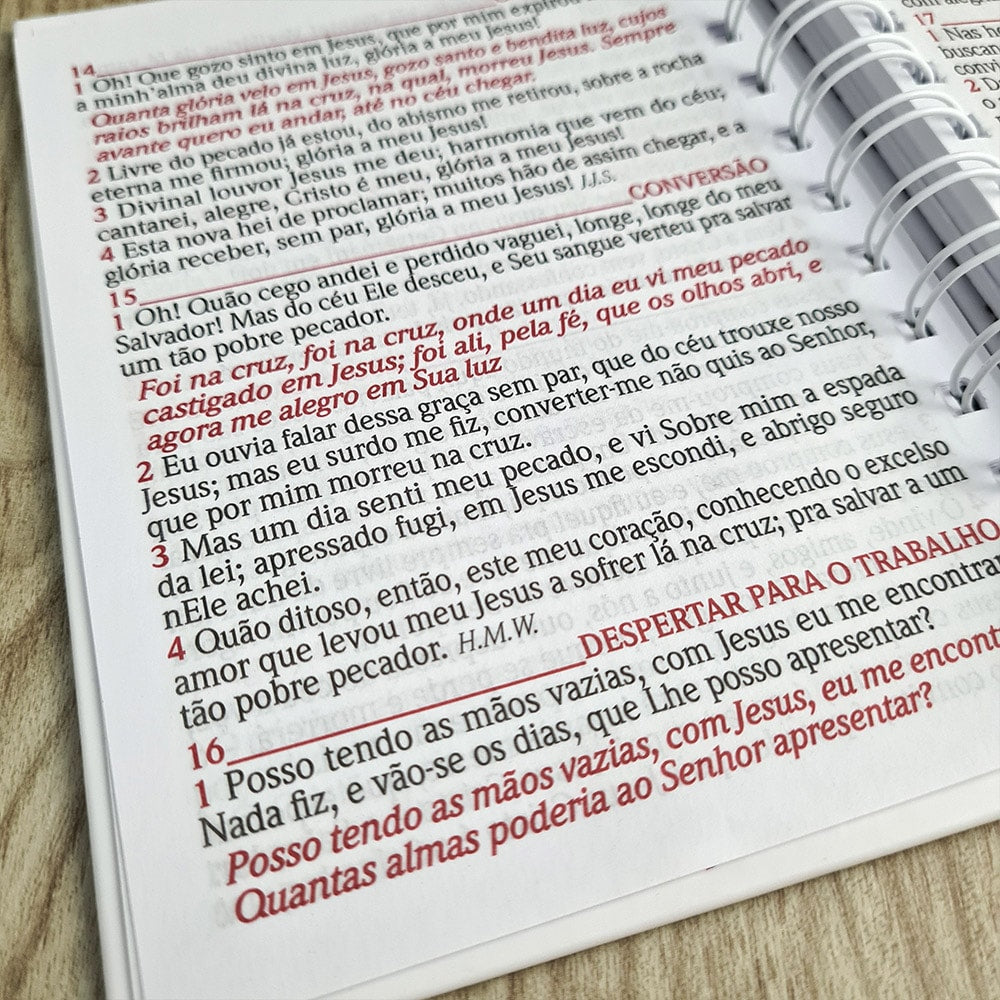 14
1 Oh! Que gozo sinto em Jesus, que por mim expirou
a minh'alma deu divina luz, glória a meu Jesus!
Quanta glória velo em Jesus, gozo santo e bendita luz, cujos
raios brilham lá na cruz, na qual, morreu Jesus. Sempre
avante quero eu andar, até no céu chegar.
2 Livre do pecado já estou, do abismo me retirou, sobre a rocha
eterna me firmou; glória a meu Jesus!
3 Divinal louvor Jesus me deu; harmonia que vem do céu;
cantarei, alegre, Cristo é meu, glória a meu Jesus!
4 Esta nova hei de proclamar; muitos hão de assim chegar, e a
glória receber, sem par, glória a meu Jesus! J.J.S.
15 CONVERSÃO
1 Oh! Quão cego andei e perdido vaguei, longe, longe do meu
Salvador! Mas do céu Ele desceu, e Seu sangue verteu pra salvar
um tão pobre pecador.
Foi na cruz, foi na cruz, onde um dia eu vi meu pecado
castigado em Jesus; foi ali, pela fé, que os olhos abri, e
agora me alegro em Sua luz
2 Eu ouvia falar dessa graça sem par, que do céu trouxe nosso
Jesus; mas eu surdo me fiz, converter-me não quis ao Senhor,
que por mim morreu na cruz.
3 Mas um dia senti meu pecado, e vi Sobre mim a espada
da lei; apressado fugi, em Jesus me escondi, e abrigo seguro
nEle achei.
4 Quão ditoso, então, este meu coração, conhecendo o excelso
amor que levou meu Jesus a sofrer lá na cruz; pra salvar a um
tão pobre pecador. H.M.W.
16 DESPERTAR PARA O TRABALHO
1 Posso tendo as mãos vazias, com Jesus eu me encontra
Nada fiz, e vão-se os dias, que Lhe posso apresentar?
Posso tendo as mãos vazias, com Jesus, eu me encont
Quantas almas poderia ao Senhor apresentar?
17
1 Nas h
buscan
convi
2 D
o